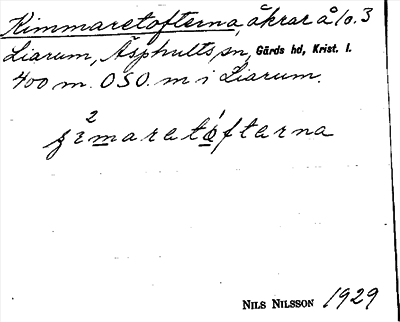 Rimmaretofterna, åkrar å lo. 3
Liarum, Äsphults sn, Gärds hd, Krist. l.
400 m. OSO. m i Liarum.
maretófterna
NILS NILSSON 1929